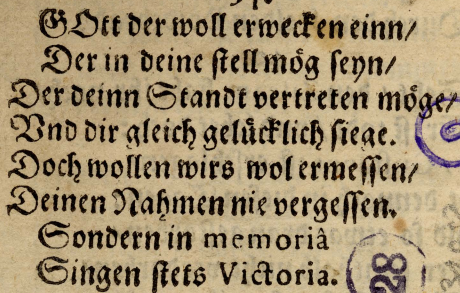 GOtt der woll erwecken einn/
Der in deine stell mög seyn/
Der deinn Standt vertreten möge/
Vnd dir gleich gelücklich siege.
Doch wollen wirs wol ermessen/
Deinen Nahmen nie vergessen.
Sondern in memoriâ
Singen stets Victoria.
28